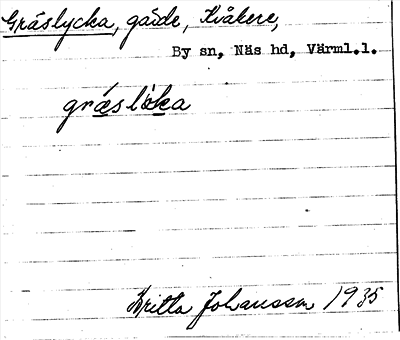 Gräslycka, gärde, Kvåkere,
By sn, Näs hd, Värml.l.
gräslöka
Britta Johansson 1935